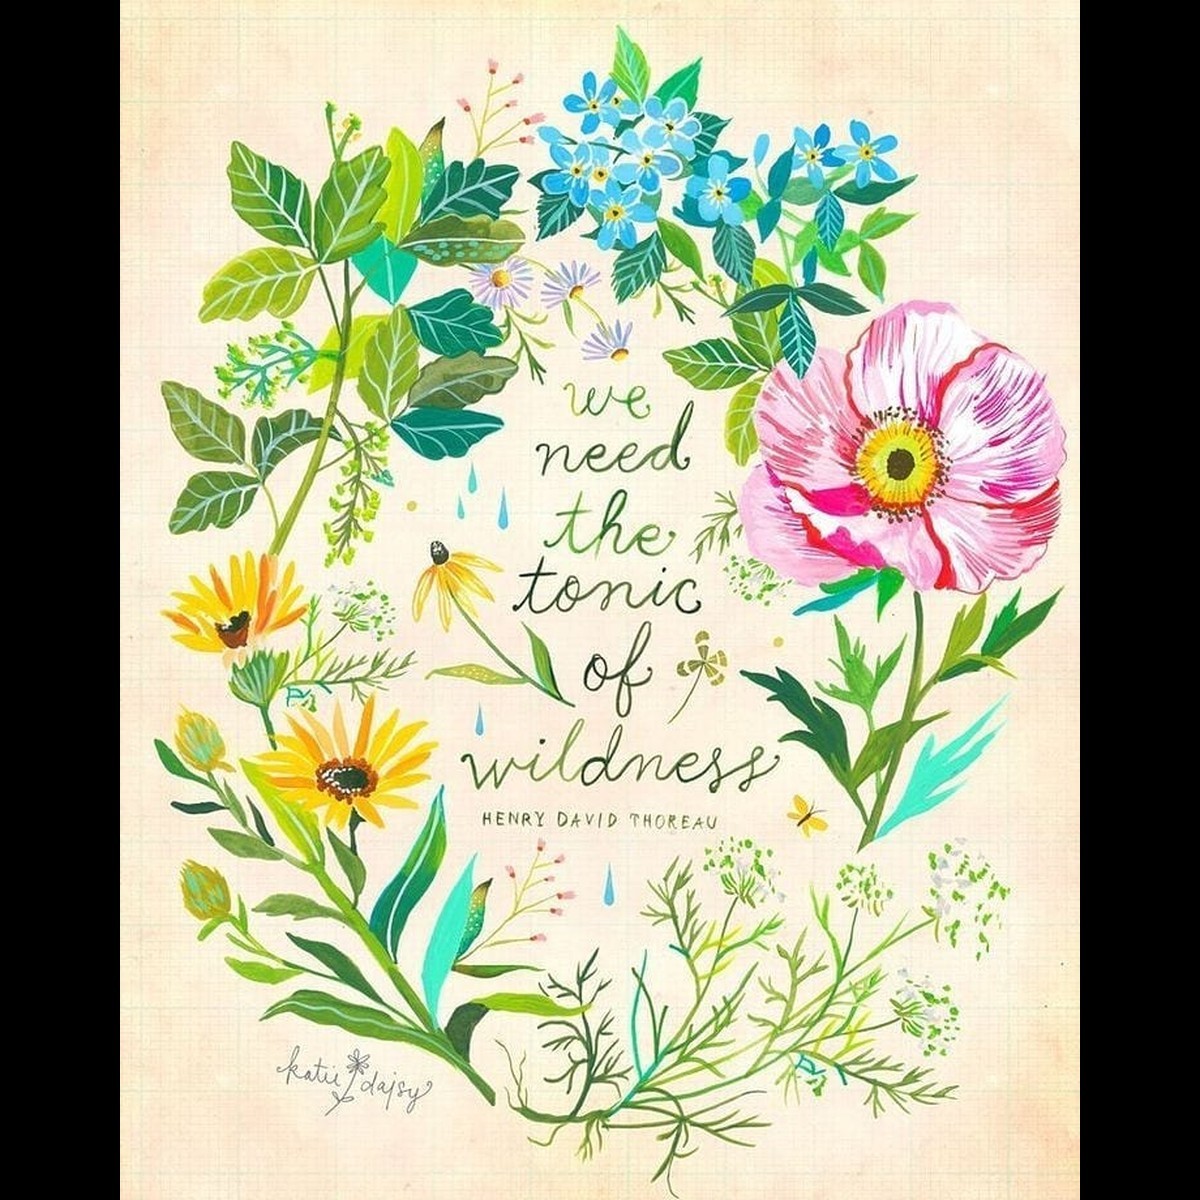 we
need
the
tonic
of
wildness
HENRY DAVID THOREAU
katie daisy